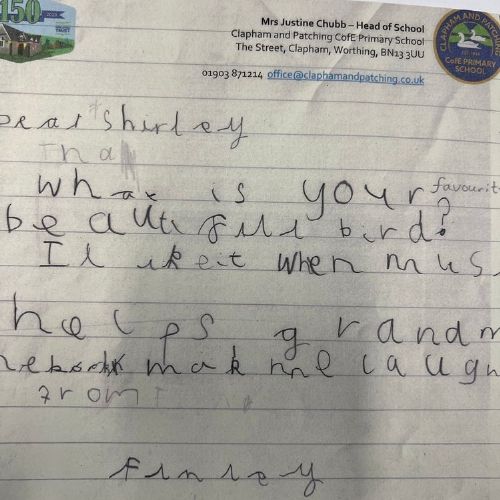 150
Mrs Justine Chubb – Head of School
Clapham and Patching CofE Primary School
The Street, Clapham, Worthing, BN13 3UU
01903 871214 office@claphamandpatching.co.uk
CLAPHAM AND PATCHING
CofE PRIMARY
SCHOOL
Dear Shirley
Tha
What is your favourit
beautifull bird?
I likeit when mus
helps grandm
makme laugh
From
Finley